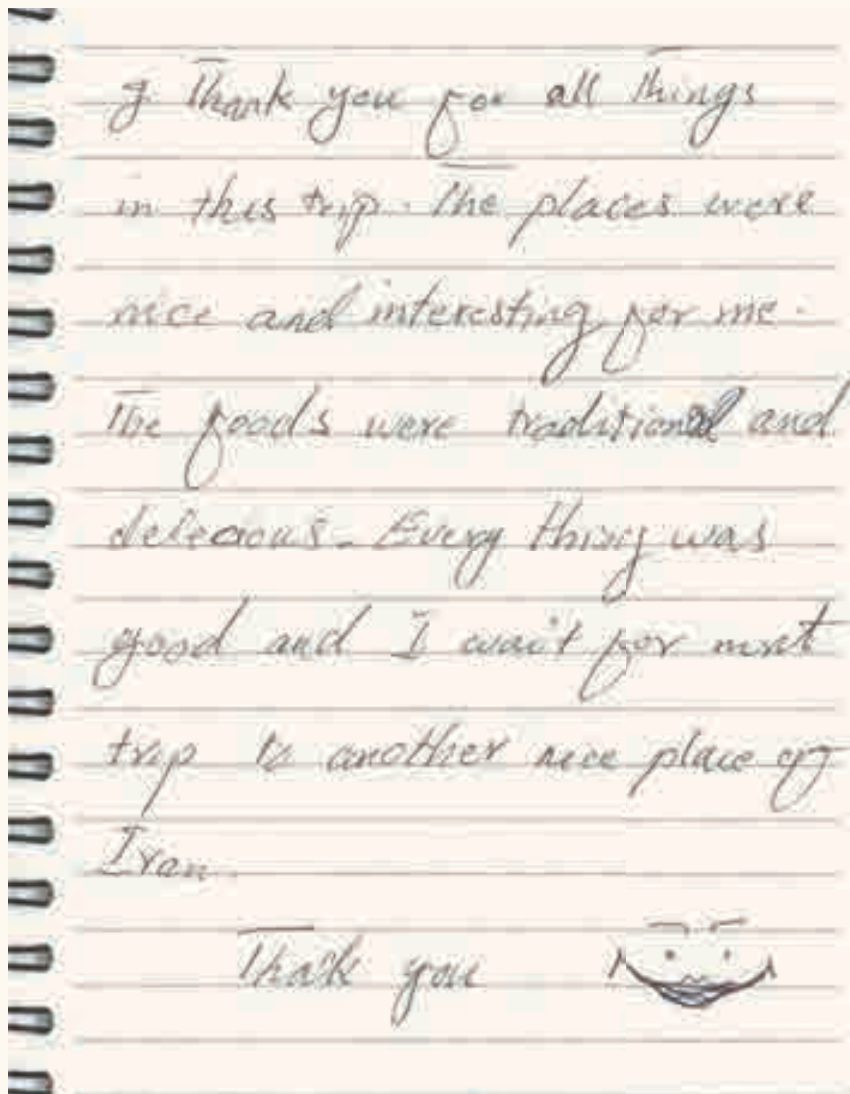 I Thank you for all Things
in this trip. The places were
nice and interesting for me.
The foods were traditional and
delecious. Every thing was
good and I wait for next
trip to another nice place of
Iran.
Thank you